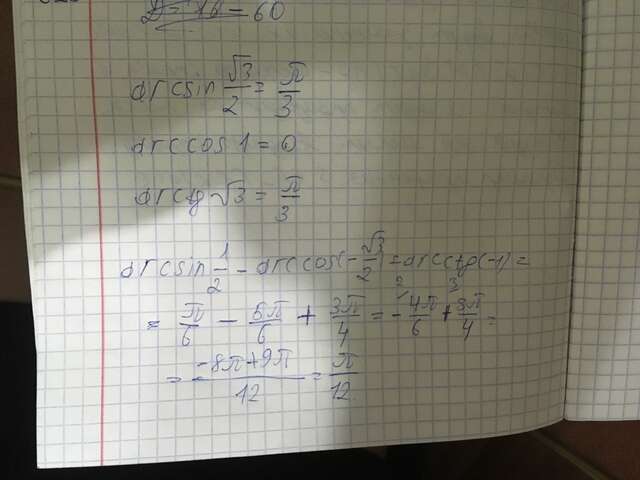 arcsin √3/2 = π/3
arccos 1 = 0
arctg √3 = π/3
arcsin 1/2 - arccos(-√3/2) = arcctg(-1) =
= π/6 - 5π/6 + 3π/4 = - 4π/6 + 3π/4 =
= -8π+9π/12 = π/12